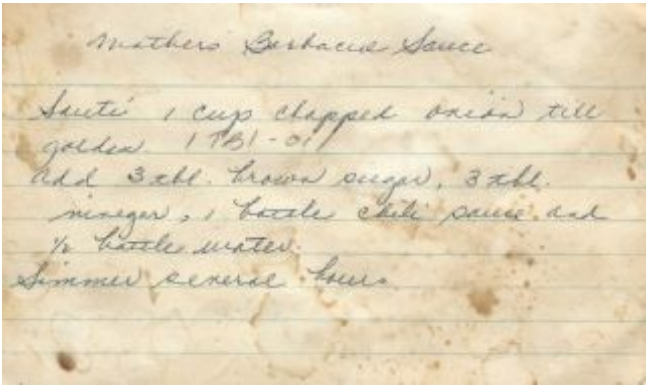 Mothers Barbacue Sauce
Sauté 1 cup chopped onion till
golden 1 TBl - oil
add 3 tbl. brown sugar, 3 tbl.
vinegar, 1 bottle chili sauce and
1/2 bottle water.
Simmer several hours.